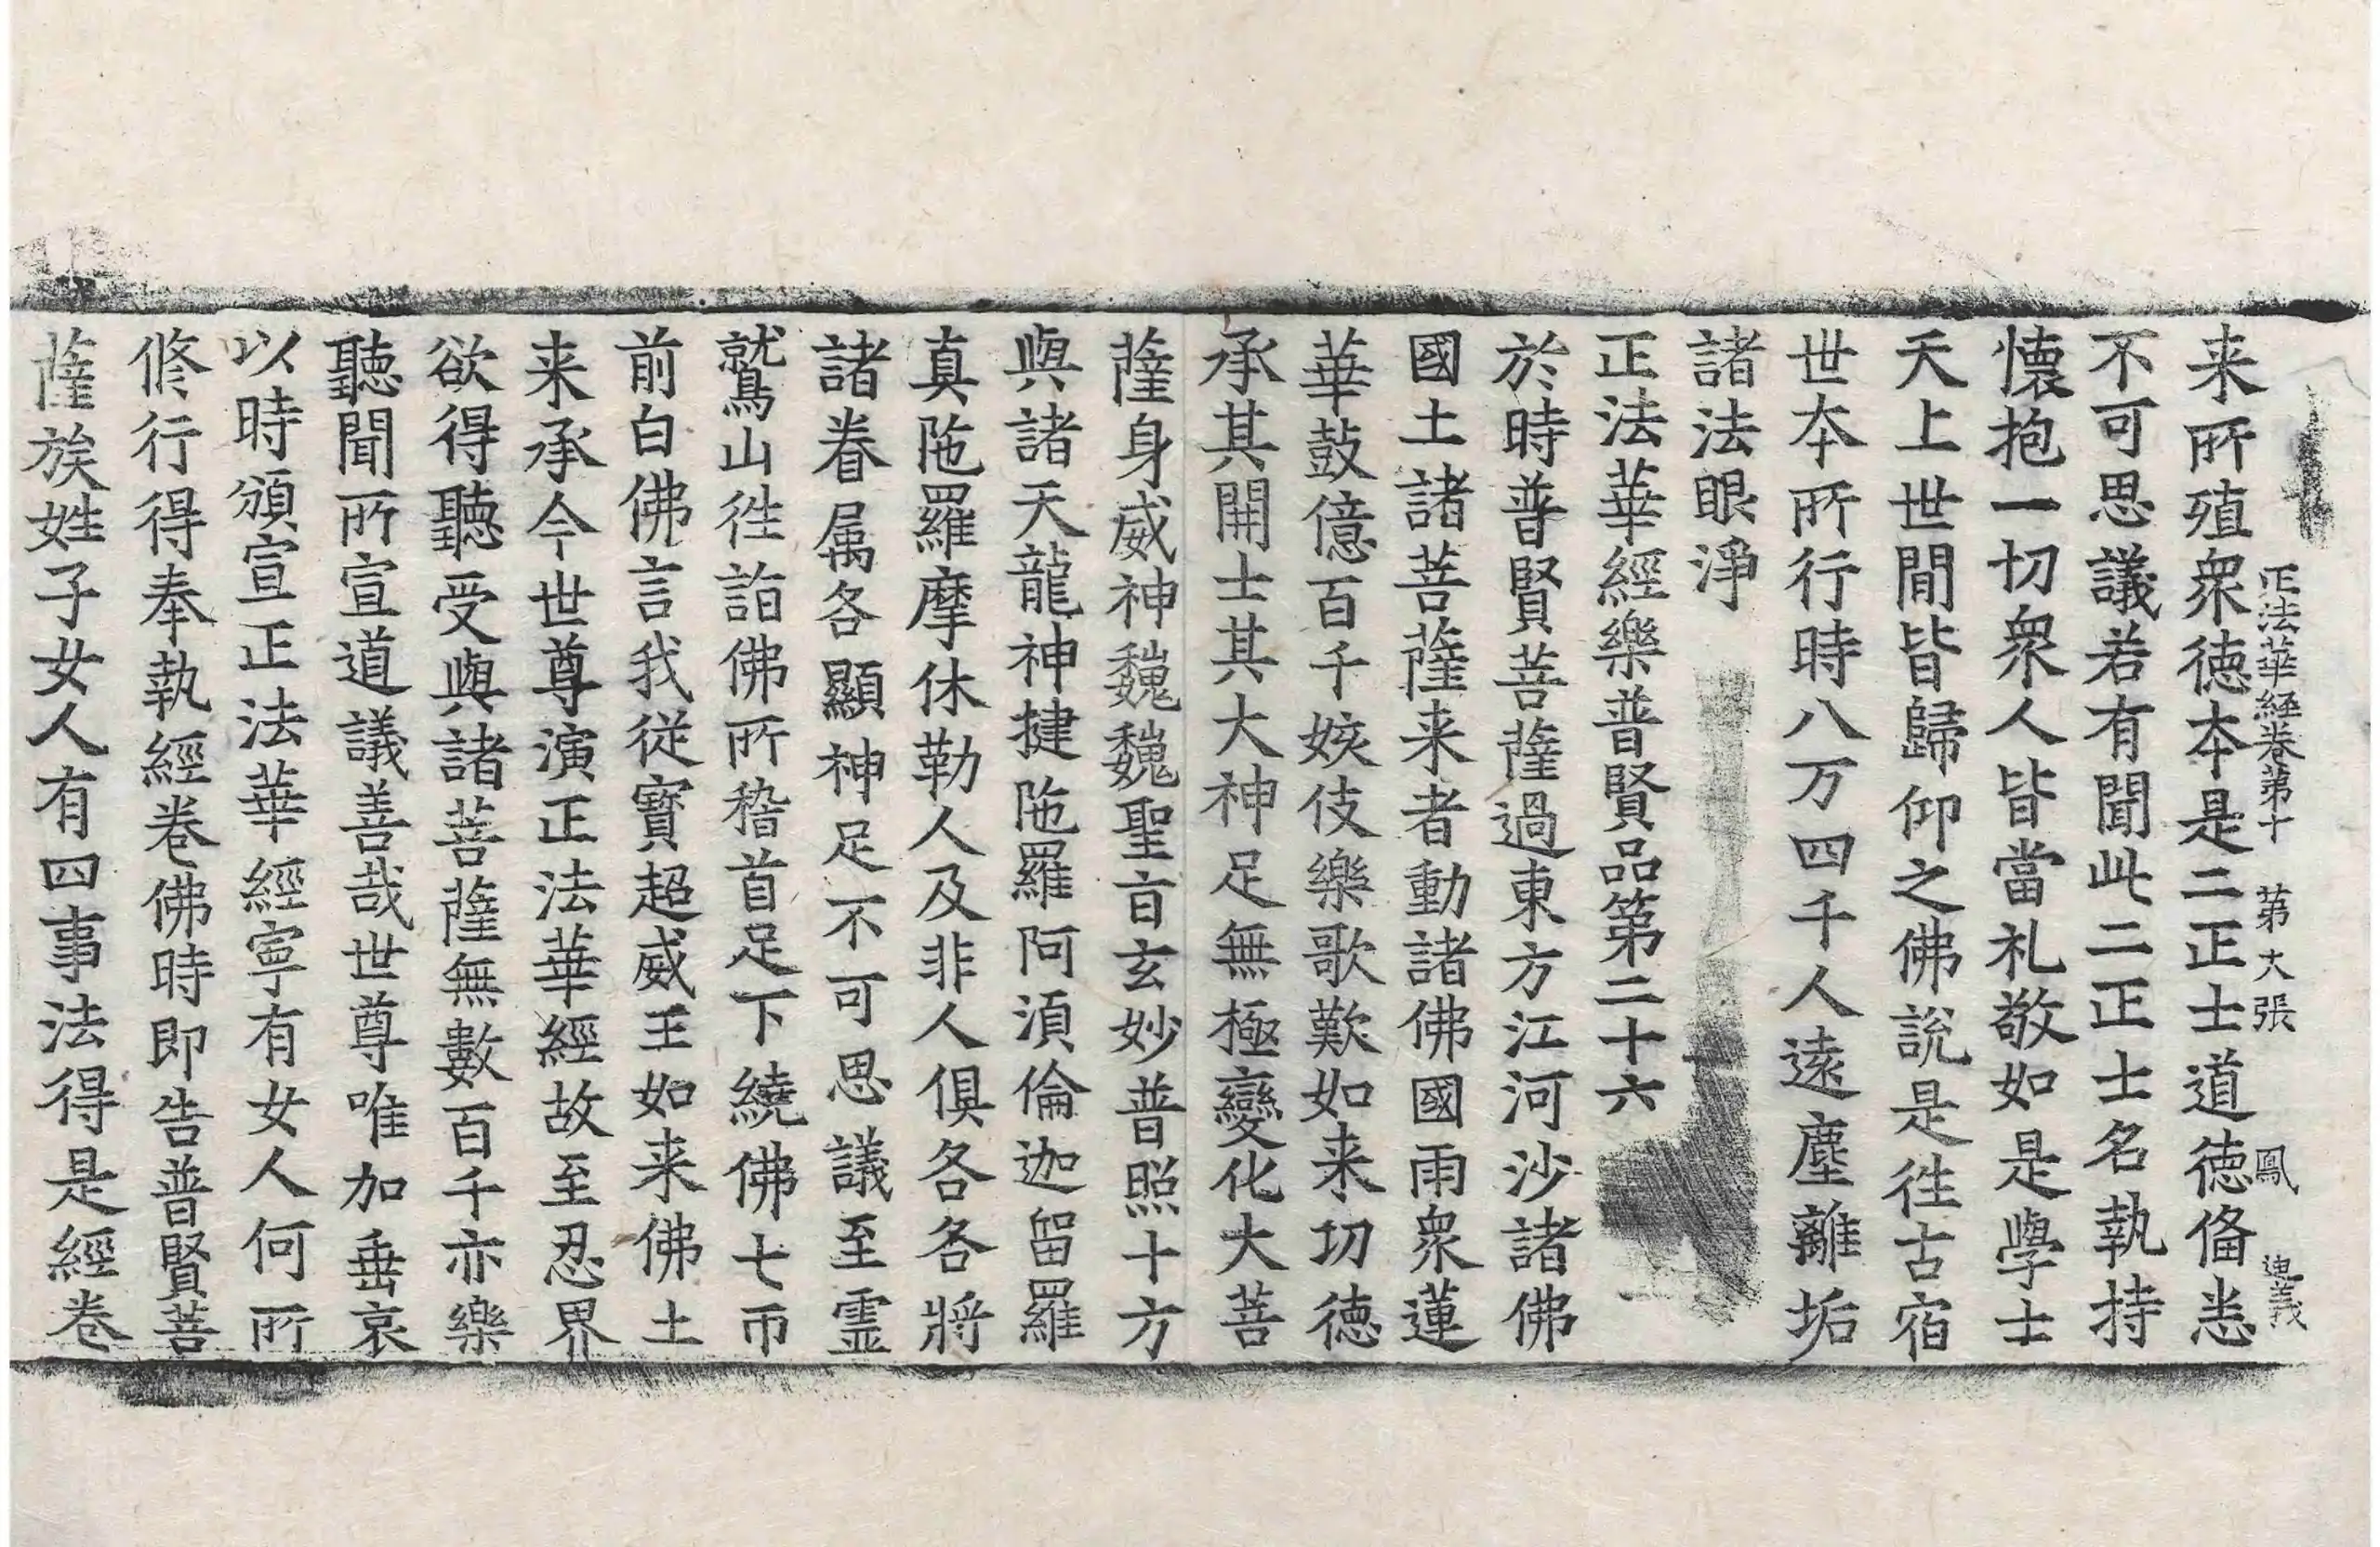 正法華経卷第十 第大張 鳳 迪義
来所殖衆徳夲是二正士道徳俻悉
不可思議若有聞此二正士名執持
懐抱一切衆人皆當礼敬如是學士
天上世間皆歸仰之佛說是徃古宿
世夲所行時八万四千人遠塵離垢
諸法眼淨
正法華經樂普賢品第二十六
於時普賢菩薩過東方江河沙諸佛
國土諸菩薩来者動諸佛國雨衆蓮
華鼓億百千姟伎樂歌歎如来功徳
承其開士其大神足無極變化大菩
薩身威神巍巍聖㫖玄妙普照十方
與諸天龍神揵陁羅阿湏倫迦留羅
真陁羅摩休勒人及非人俱各各將
諸眷属各顯神足不可思議至霊
鷲山徃詣佛所稽首足下繞佛七帀
前白佛言我従寳超威王如来佛土
来承今世尊演正法華經故至忍界
欲得聽受與諸菩薩無數百千亦樂
聽聞所宣道議善哉世尊唯加垂哀
以時頒宣正法華經寧有女人何所
修行得奉執經卷佛時即告普賢菩
薩族姓子女人有四事法得是經卷